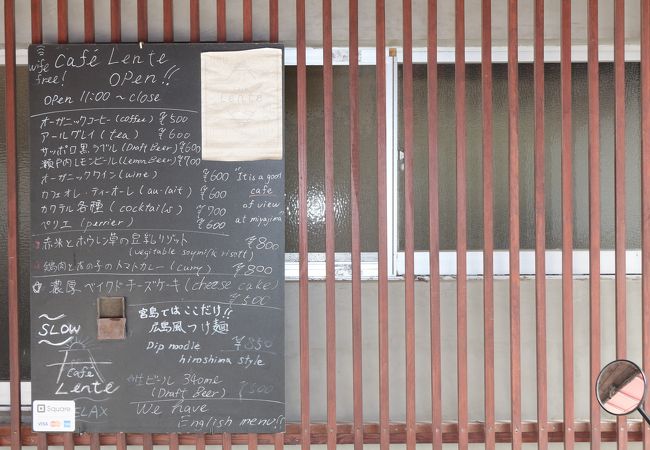 wifi free!
Café Lente
OPen!!
OPen 11:00 ~ close
Lente
オーガニックコーヒー(coffee) ¥500
アールグレイ(tea) ¥600
サッポロ黒ラベル(Draft Beer) ¥600
瀬戸内レモンビール(Lemon Beer) ¥700
オーガニックワイン(wine) ¥600
カフェオレ・ティーオーレ(au-lait) ¥600
カクテル各種(cocktails) ¥700
ペリエ(perrier) ¥600
"It is a good
cafe
of view
at miyajima"
赤米とホウレン草の豆乳リゾット ¥800
(vegitable soymilk risott)
鶏肉と茸の子のトマトカレー(curry) ¥800
濃厚ベイクドチーズケーキ(cheese cake)
¥500
宮島ではここだけ!!
広島風つけ麺
Dip noodle ¥850
hiroshima style
SLOW
Café
Lente
RELAX
生ビール 340ml
(Draft Beer) ¥500
We have
English menu!!
Square
VISA